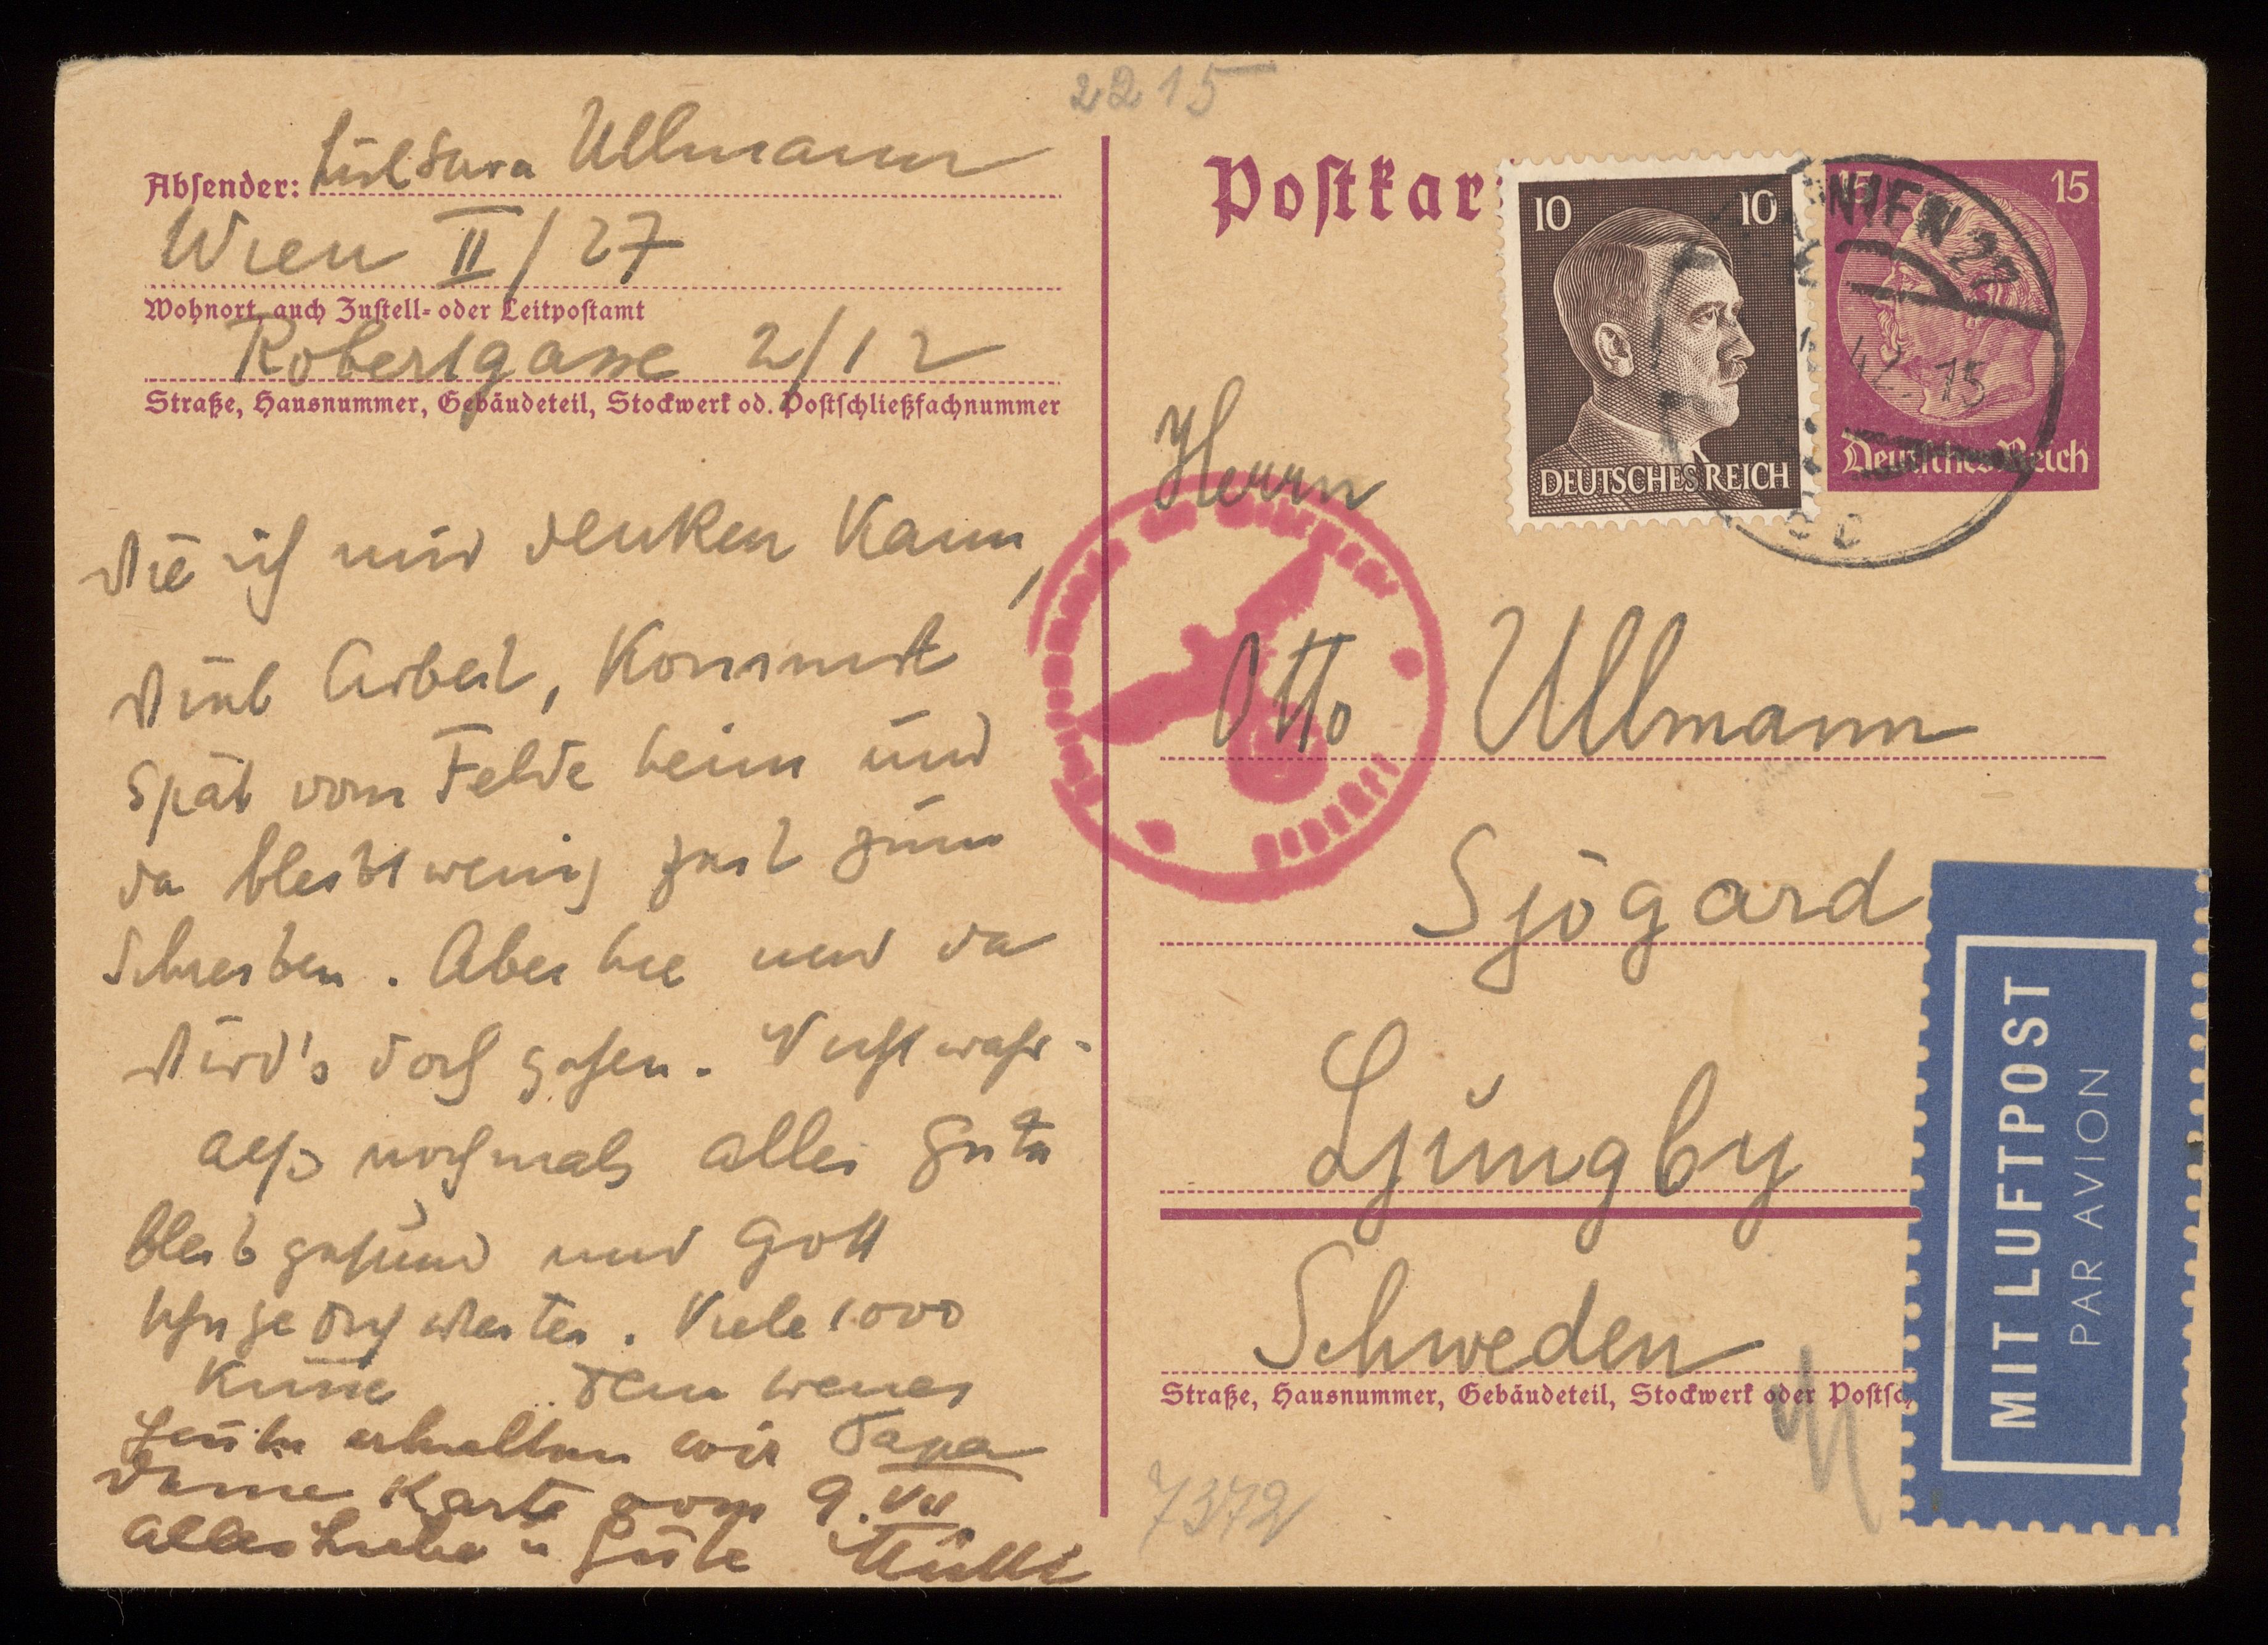 2215
Absender: Sara Ullmann
Wien II/27
Wohnort, auch Zustell- oder Leitpostamt
Robertgasse 2/12
Straße, Hausnummer, Gebäudeteil, Stockwerk od. Postschließfachnummer
Wie ich mir denken kann,
viel Arbeit, kommst
spät vom Felde heim und
da bleibt wenig Zeit zum
Schreiben. Aber hie und da
wird's doch gehen. Nicht wahr-
also nochmals alles Gute
bleib gesund und Gott
schütze Dich weiter. Viele 1000
Küsse
Heute erhalten wir Papa
Deine Karte vom 9. VII
Alles Liebe u Gute Mutti
Postkar
10 10
DEUTSCHES REICH
15 15
Deutsches Reich
WIEN 27
42. 15
Herrn
Otto Ullmann
Sjögard
Ljungby
Schweden
Straße, Hausnummer, Gebäudeteil, Stockwerk oder Postsch
7372
MIT LUFTPOST
PAR AVION